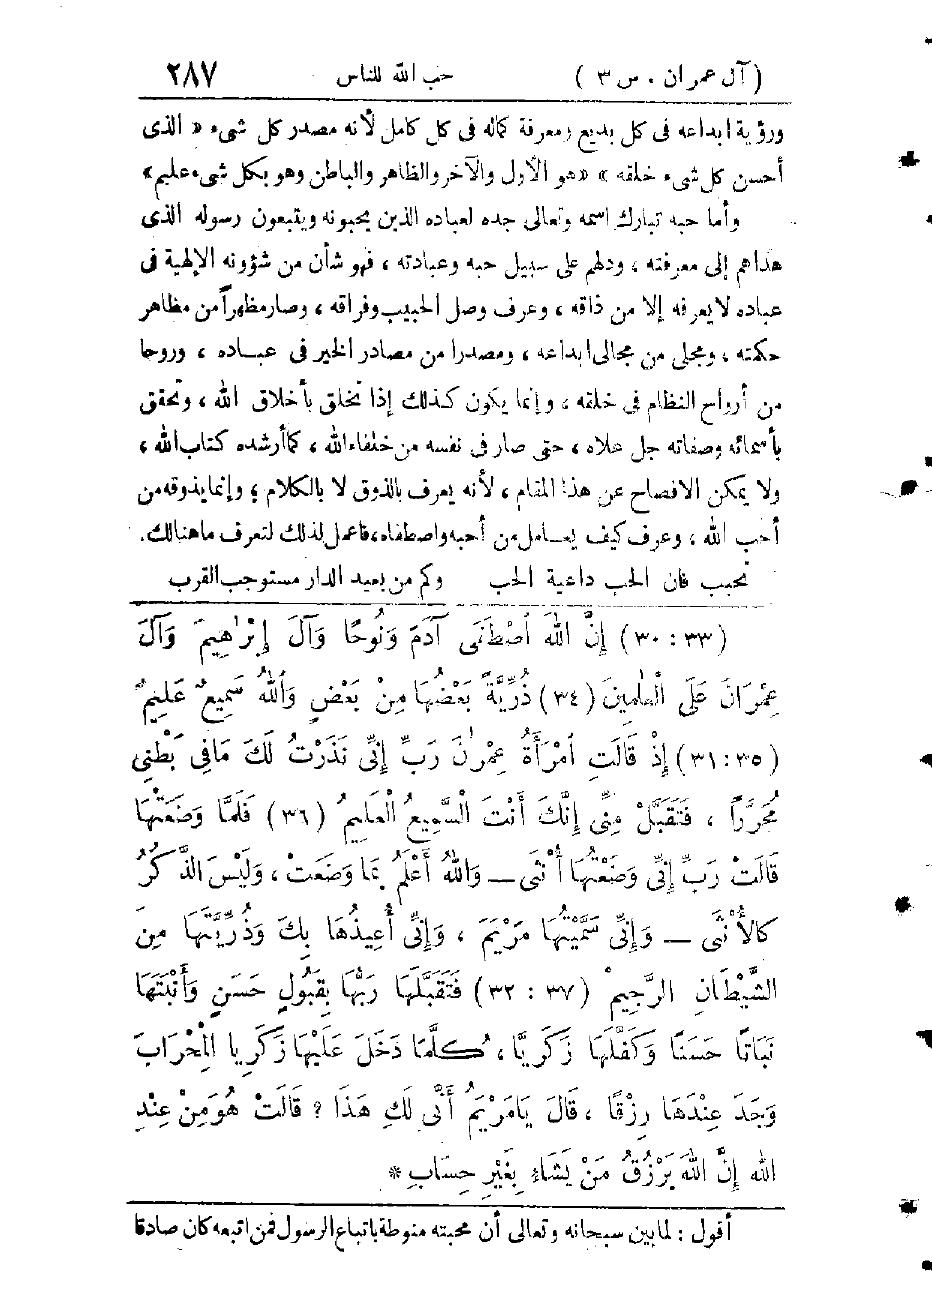 (آل عمران . س ٣) حب الله للناس ٢٨٧
ورؤية ابداعه فى كل بديع ومعرفة كماله فى كل كامل لأنه مصدر كل شىء « الذى
أحسن كل شىء خلقه » «هو الأول والآخر والظاهر والباطن وهو بكل شىء عليم»
وأما حبه تبارك اسمه وتعالى جده لعباده الذين يحبونه ويتبعون رسوله الذى
هداهم إلى معرفته ، ودلهم على سبيل حبه وعبادته ، فهو شأن من شؤونه الإلهية فى
عباده لا يعرفه إلا من ذاقه ، وعرف وصل الحبيب وفراقه ، وصار مظهراً من مظاهر
حكمته ، ومجلى من مجالى ابداعه ، ومصدرا من مصادر الخير فى عباده ، وروحا
من أرواح النظام فى خلقه ، وإنما يكون كذلك إذا تخلق بأخلاق الله ، وتحقق
بأسمائه وصفاته جل علاه ، حتى صار فى نفسه من خلفاء الله ، كما أرشده كتاب الله ،
ولا يمكن الافصاح عن هذا المقام ، لأنه يعرف بالذوق لا بالكلام ؛ وإنما يذوقه من
أحب الله ، وعرف كيف يعامل من أحبه واصطفاه، فاعمل لذلك لتعرف ما هنالك.
تحبب فان الحب داعية الحب وكم من بعيد الدار مستوجب القرب
(٣٣ : ٣٠) إِنَّ اللهَ أصْطَفَى آدَمَ وَنُوحًا وَآلَ إِبْرَاهِيمَ وَآلَ
عِمْرَانَ عَلَى الْعَالَمِينَ (٣٤) ذُرِّيَّةً بَعْضُهَا مِنْ بَعْضٍ وَاللهُ سَمِيعٌ عَلِيمٌ
(٣٥ : ٣١) إِذْ قَالَتِ امْرَأَةُ عِمْرٰنَ رَبِّ إِنِّى نَذَرْتُ لَكَ مَا فِى بَطْنِى
مُحَرَّرًا ، فَتَقَبَّلْ مِنِّى إِنَّكَ أَنْتَ السَّمِيعُ الْعَلِيمُ (٣٦) فَلَمَّا وَضَعَتْهَا
قَالَتْ رَبِّ إِنِّى وَضَعْتُهَا أُنْثَى — وَاللهُ أَعْلَمُ بِمَا وَضَعَتْ ، وَلَيْسَ الذَّكَرُ
كَالأُنْثَى — وَإِنِّى سَمَّيْتُهَا مَرْيَمَ ، وَإِنِّى أُعِيذُهَا بِكَ وَذُرِّيَّتَهَا مِنَ
الشَّيْطَانِ الرَّجِيمِ (٣٧ : ٣٢) فَتَقَبَّلَهَا رَبُّهَا بِقَبُولٍ حَسَنٍ وَأَنْبَتَهَا
نَبَاتًا حَسَنًا وَكَفَّلَهَا زَكَرِيَّا ، كُلَّمَا دَخَلَ عَلَيْهَا زَكَرِيا الْمِحْرَابَ
وَجَدَ عِنْدَهَا رِزْقًا ، قَالَ يَا مَرْيَمُ أَنَّى لَكِ هَذَا ؟ قَالَتْ هُوَ مِنْ عِنْدِ
الله إِنَّ اللهَ يَرْزُقُ مَنْ يَشَاءُ بِغَيْرِ حِسَابٍ *
أقول : لما بين سبحانه وتعالى أن محبته منوطة باتباع الرسول فمن اتبعه كان صادقا